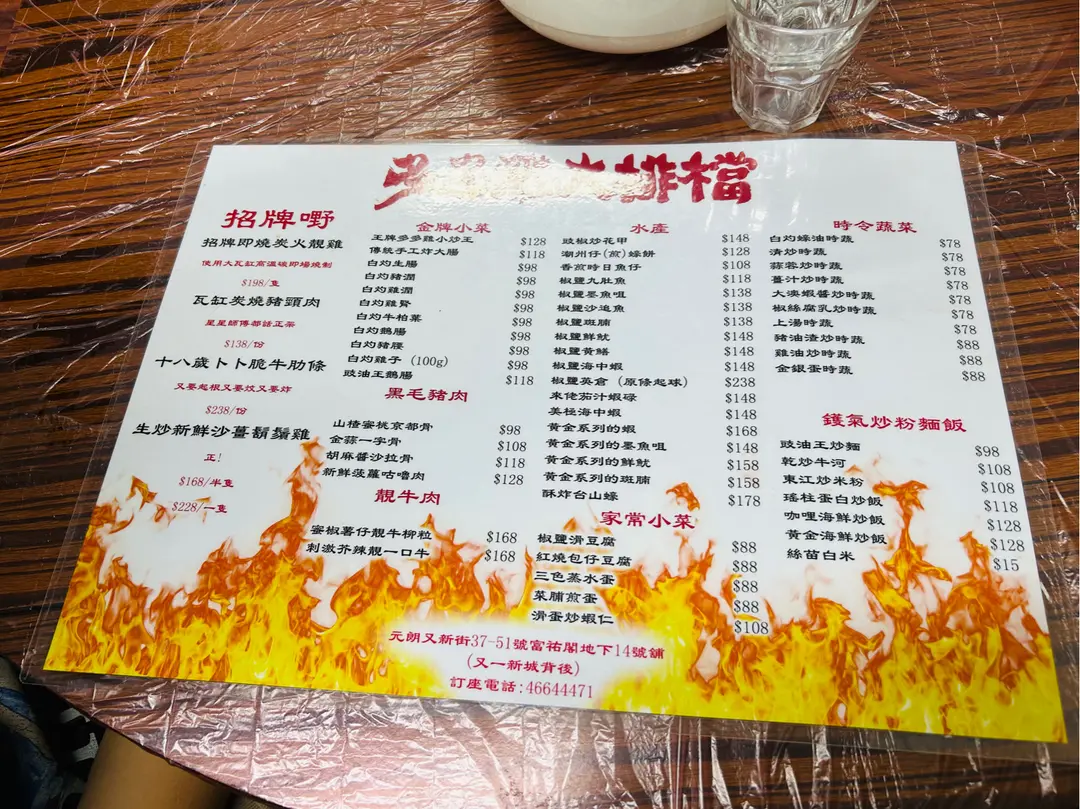 多
排檔
招牌嘢
招牌即燒炭火靚雞
使用大瓦缸高溫碳即場燒制
$198/隻
瓦缸炭燒豬頸肉
星星師傅都話正架
$138/份
十八歲卜卜脆牛肋條
又要起根又要炆又要炸
$238/份
生炒新鮮沙薑鬍鬚雞
正!
$168/半隻
$228/一隻
金牌小菜
王牌多多雞小炒王 $128
傳統手工炸大腸 $118
白灼生腸 $98
白灼豬潤 $98
白灼雞潤 $98
白灼雞腎 $98
白灼牛柏葉 $98
白灼鵝腸 $98
白灼豬腰 $98
白灼雞子 (100g) $98
豉油王鵝腸 $118
黑毛豬肉
山楂蜜桃京都骨 $98
金蒜一字骨 $108
胡麻醬沙拉骨 $118
新鮮菠蘿咕嚕肉 $128
靚牛肉
蜜椒薯仔靚牛柳粒 $168
刺激芥辣靚一口牛 $168
水產
豉椒炒花甲 $148
潮州仔(煎)蠔餅 $128
香煎時日魚仔 $108
椒鹽九肚魚 $118
椒鹽墨魚咀 $138
椒鹽沙追魚 $138
椒鹽斑腩 $138
椒鹽鮮魷 $148
椒鹽黃鱔 $148
椒鹽海中蝦 $148
椒鹽英倉 (原條起球) $238
來佬茄汁蝦碌 $148
美極海中蝦 $148
黃金系列的蝦 $168
黃金系列的墨魚咀 $148
黃金系列的鮮魷 $158
黃金系列的斑腩 $158
酥炸台山蠔 $178
家常小菜
椒鹽滑豆腐 $88
紅燒包仔豆腐 $88
三色蒸水蛋 $88
菜脯煎蛋 $88
滑蛋炒蝦仁 $108
時令蔬菜
白灼蠔油時蔬 $78
清炒時蔬 $78
蒜蓉炒時蔬 $78
薑汁炒時蔬 $78
大澳蝦醬炒時蔬 $78
椒絲腐乳炒時蔬 $78
上湯時蔬 $78
豬油渣炒時蔬 $88
雞油炒時蔬 $88
金銀蛋時蔬 $88
鑊氣炒粉麵飯
豉油王炒麵 $98
乾炒牛河 $108
東江炒米粉 $108
瑤柱蛋白炒飯 $118
咖哩海鮮炒飯 $128
黃金海鮮炒飯 $128
絲苗白米 $15
元朗又新街37-51號富祐閣地下14號舖
(又一新城背後)
訂座電話:46644471